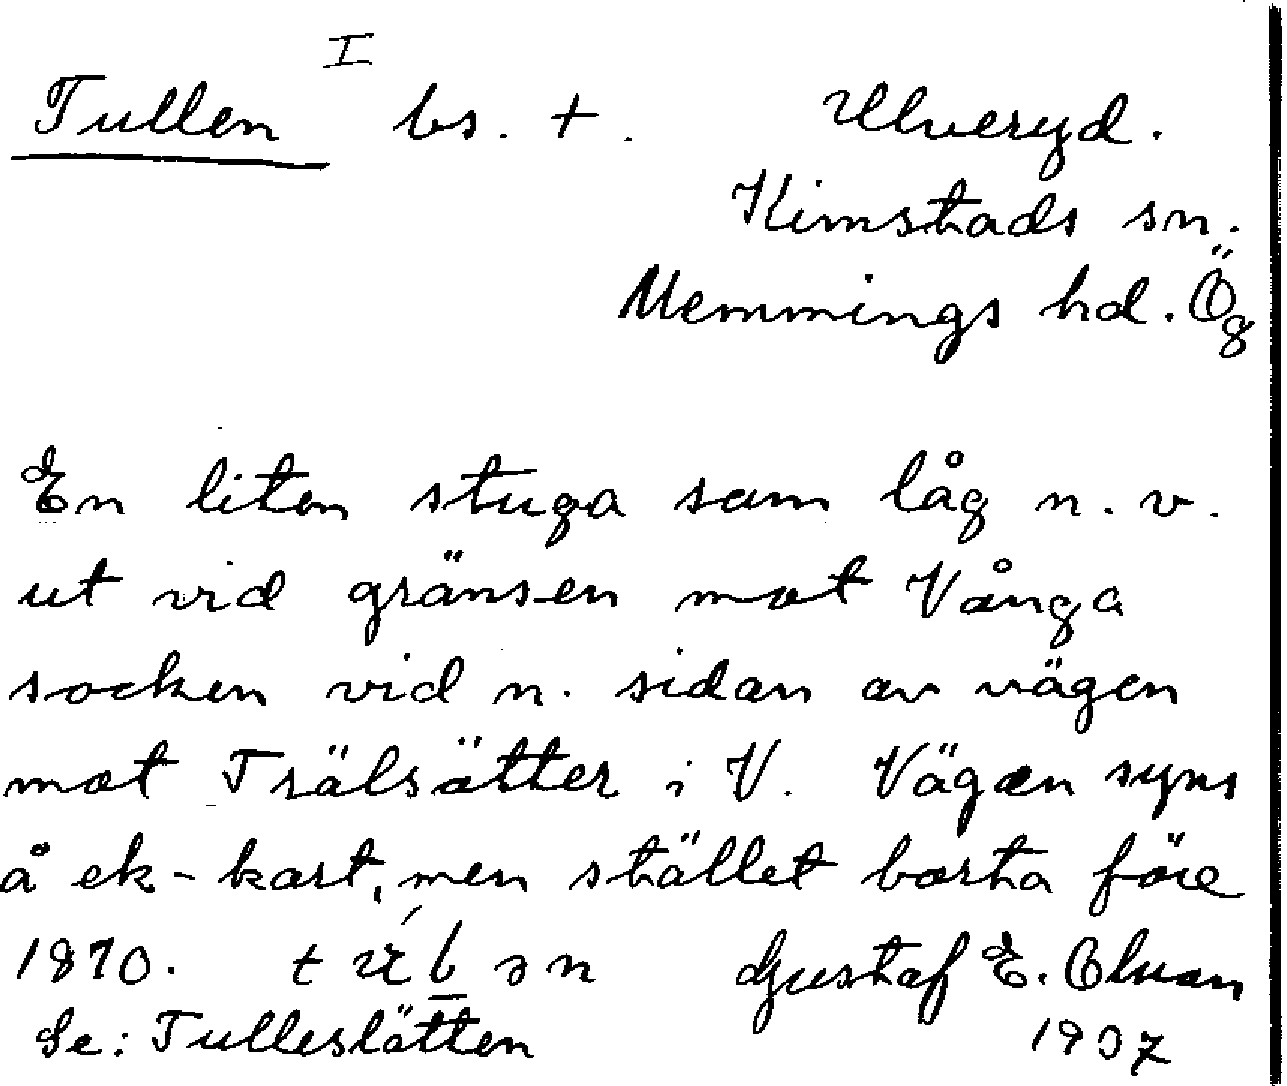 I
Tullen bs. +. Ulveryd.
Kimstads sn.
Memmings hd. Ög
En liten stuga som låg n. v.
ut vid gränsen mot Vånga
socken vid n. sidan av vägen
mot Trälsätter i V. Vägen syns
å ek-kart, men stället borta före
1870. Gustaf E. Olsson
Se: Tulleslätten 1937